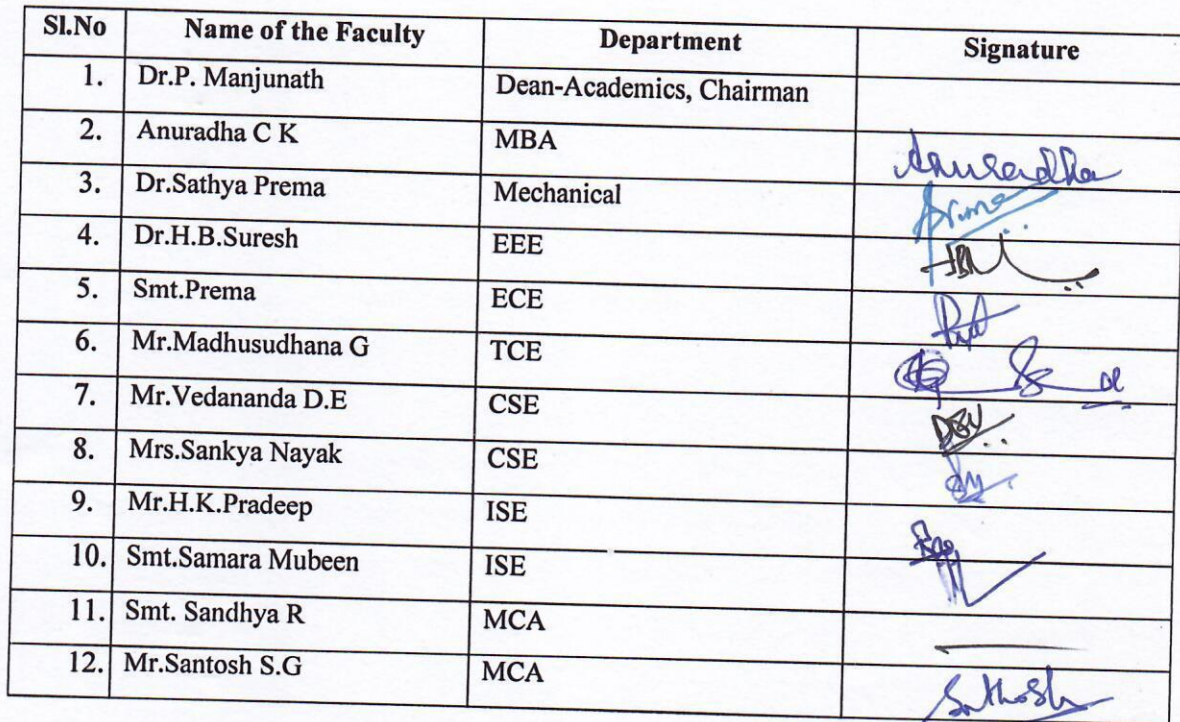 Sl.No Name of the Faculty Department Signature
1. Dr.P. Manjunath Dean-Academics, Chairman
2. Anuradha C K MBA Anuradha
3. Dr.Sathya Prema Mechanical Prema
4. Dr.H.B.Suresh EEE
5. Smt.Prema ECE
6. Mr.Madhusudhana G TCE
7. Mr.Vedananda D.E CSE
8. Mrs.Sankya Nayak CSE
9. Mr.H.K.Pradeep ISE
10. Smt.Samara Mubeen ISE
11. Smt. Sandhya R MCA
12. Mr.Santosh S.G MCA Santhosh